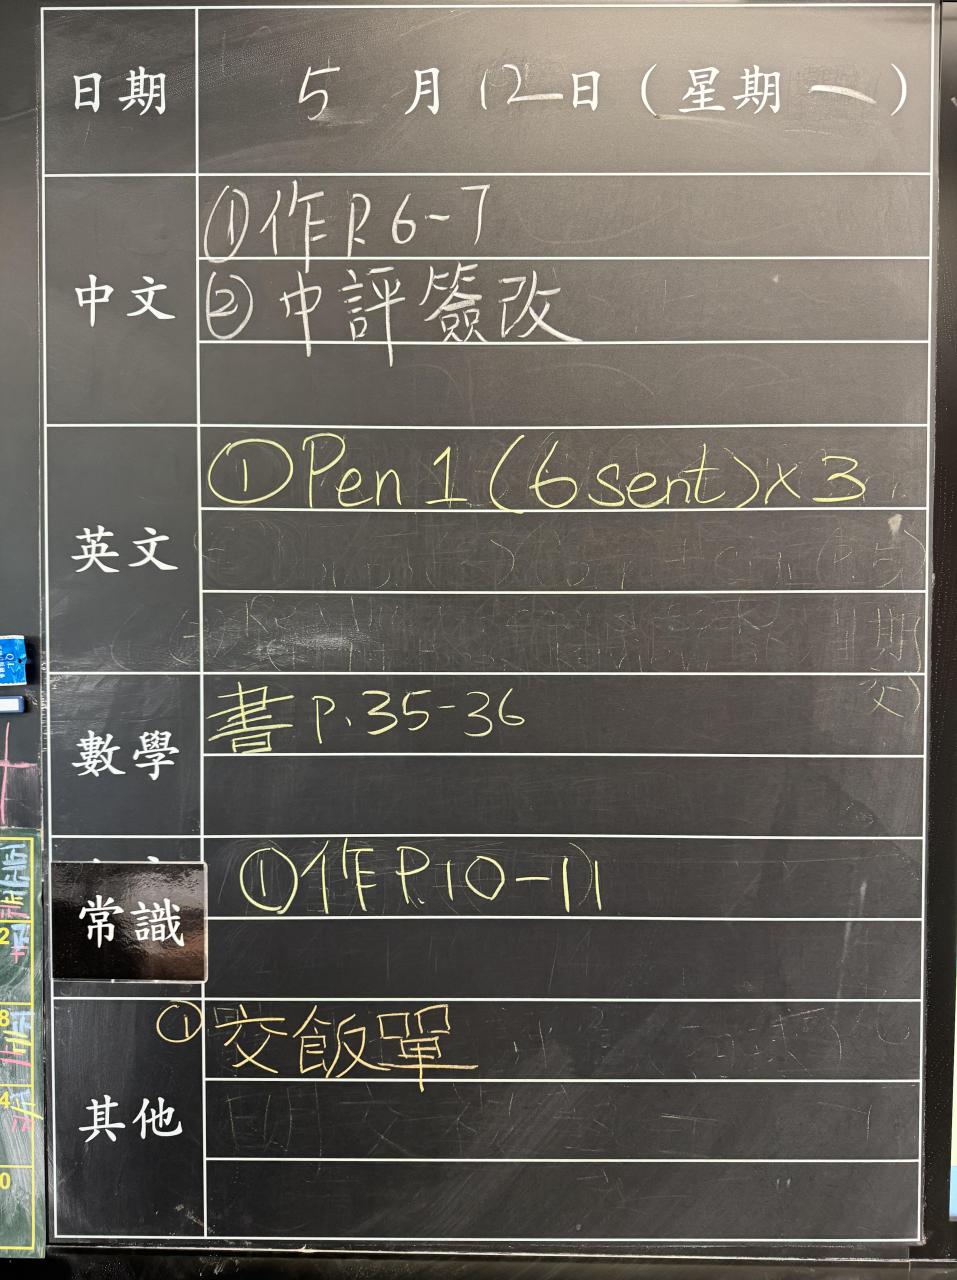 日期 5月12日(星期一)
中文
①作P.6-7
②中評簽改
英文
①Pen 1 (6 sent) x 3
數學
書 P.35-36
常識
①作P.10-11
其他
①交飯單